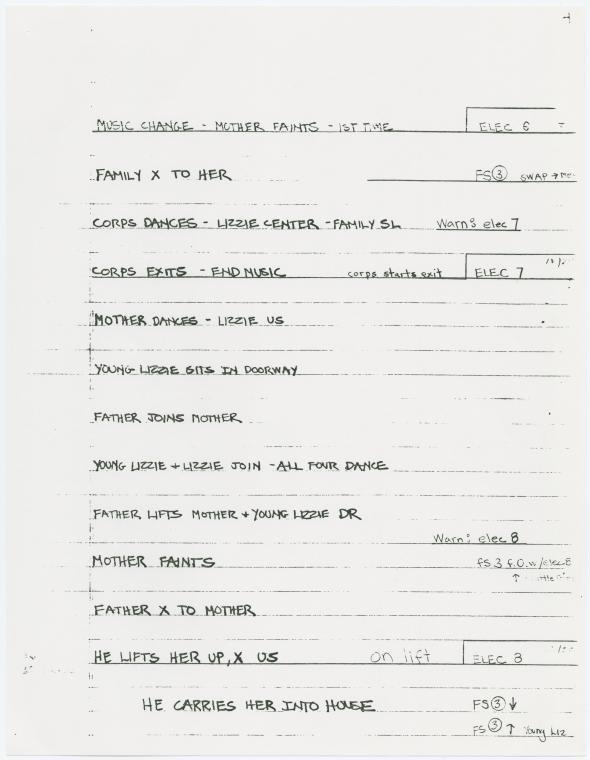 4
MUSIC CHANGE - MOTHER FAINTS - 1ST TIME ELEC 6
FAMILY X TO HER FS③ SWAP →
CORPS DANCES - LIZZIE CENTER - FAMILY SL Warn: elec 7
CORPS EXITS - END MUSIC corps starts exit ELEC 7
MOTHER DANCES - LIZZIE US
YOUNG LIZZIE SITS IN DOORWAY
FATHER JOINS MOTHER
YOUNG LIZZIE + LIZZIE JOIN - ALL FOUR DANCE
FATHER LIFTS MOTHER + YOUNG LIZZIE DR
Warn: elec 8
MOTHER FAINTS fS 3 f.O. w/elec 8
↑
FATHER X TO MOTHER
HE LIFTS HER UP, X US on lift ELEC 8
HE CARRIES HER INTO HOUSE FS③ ↓
FS③ ↑ Young Liz